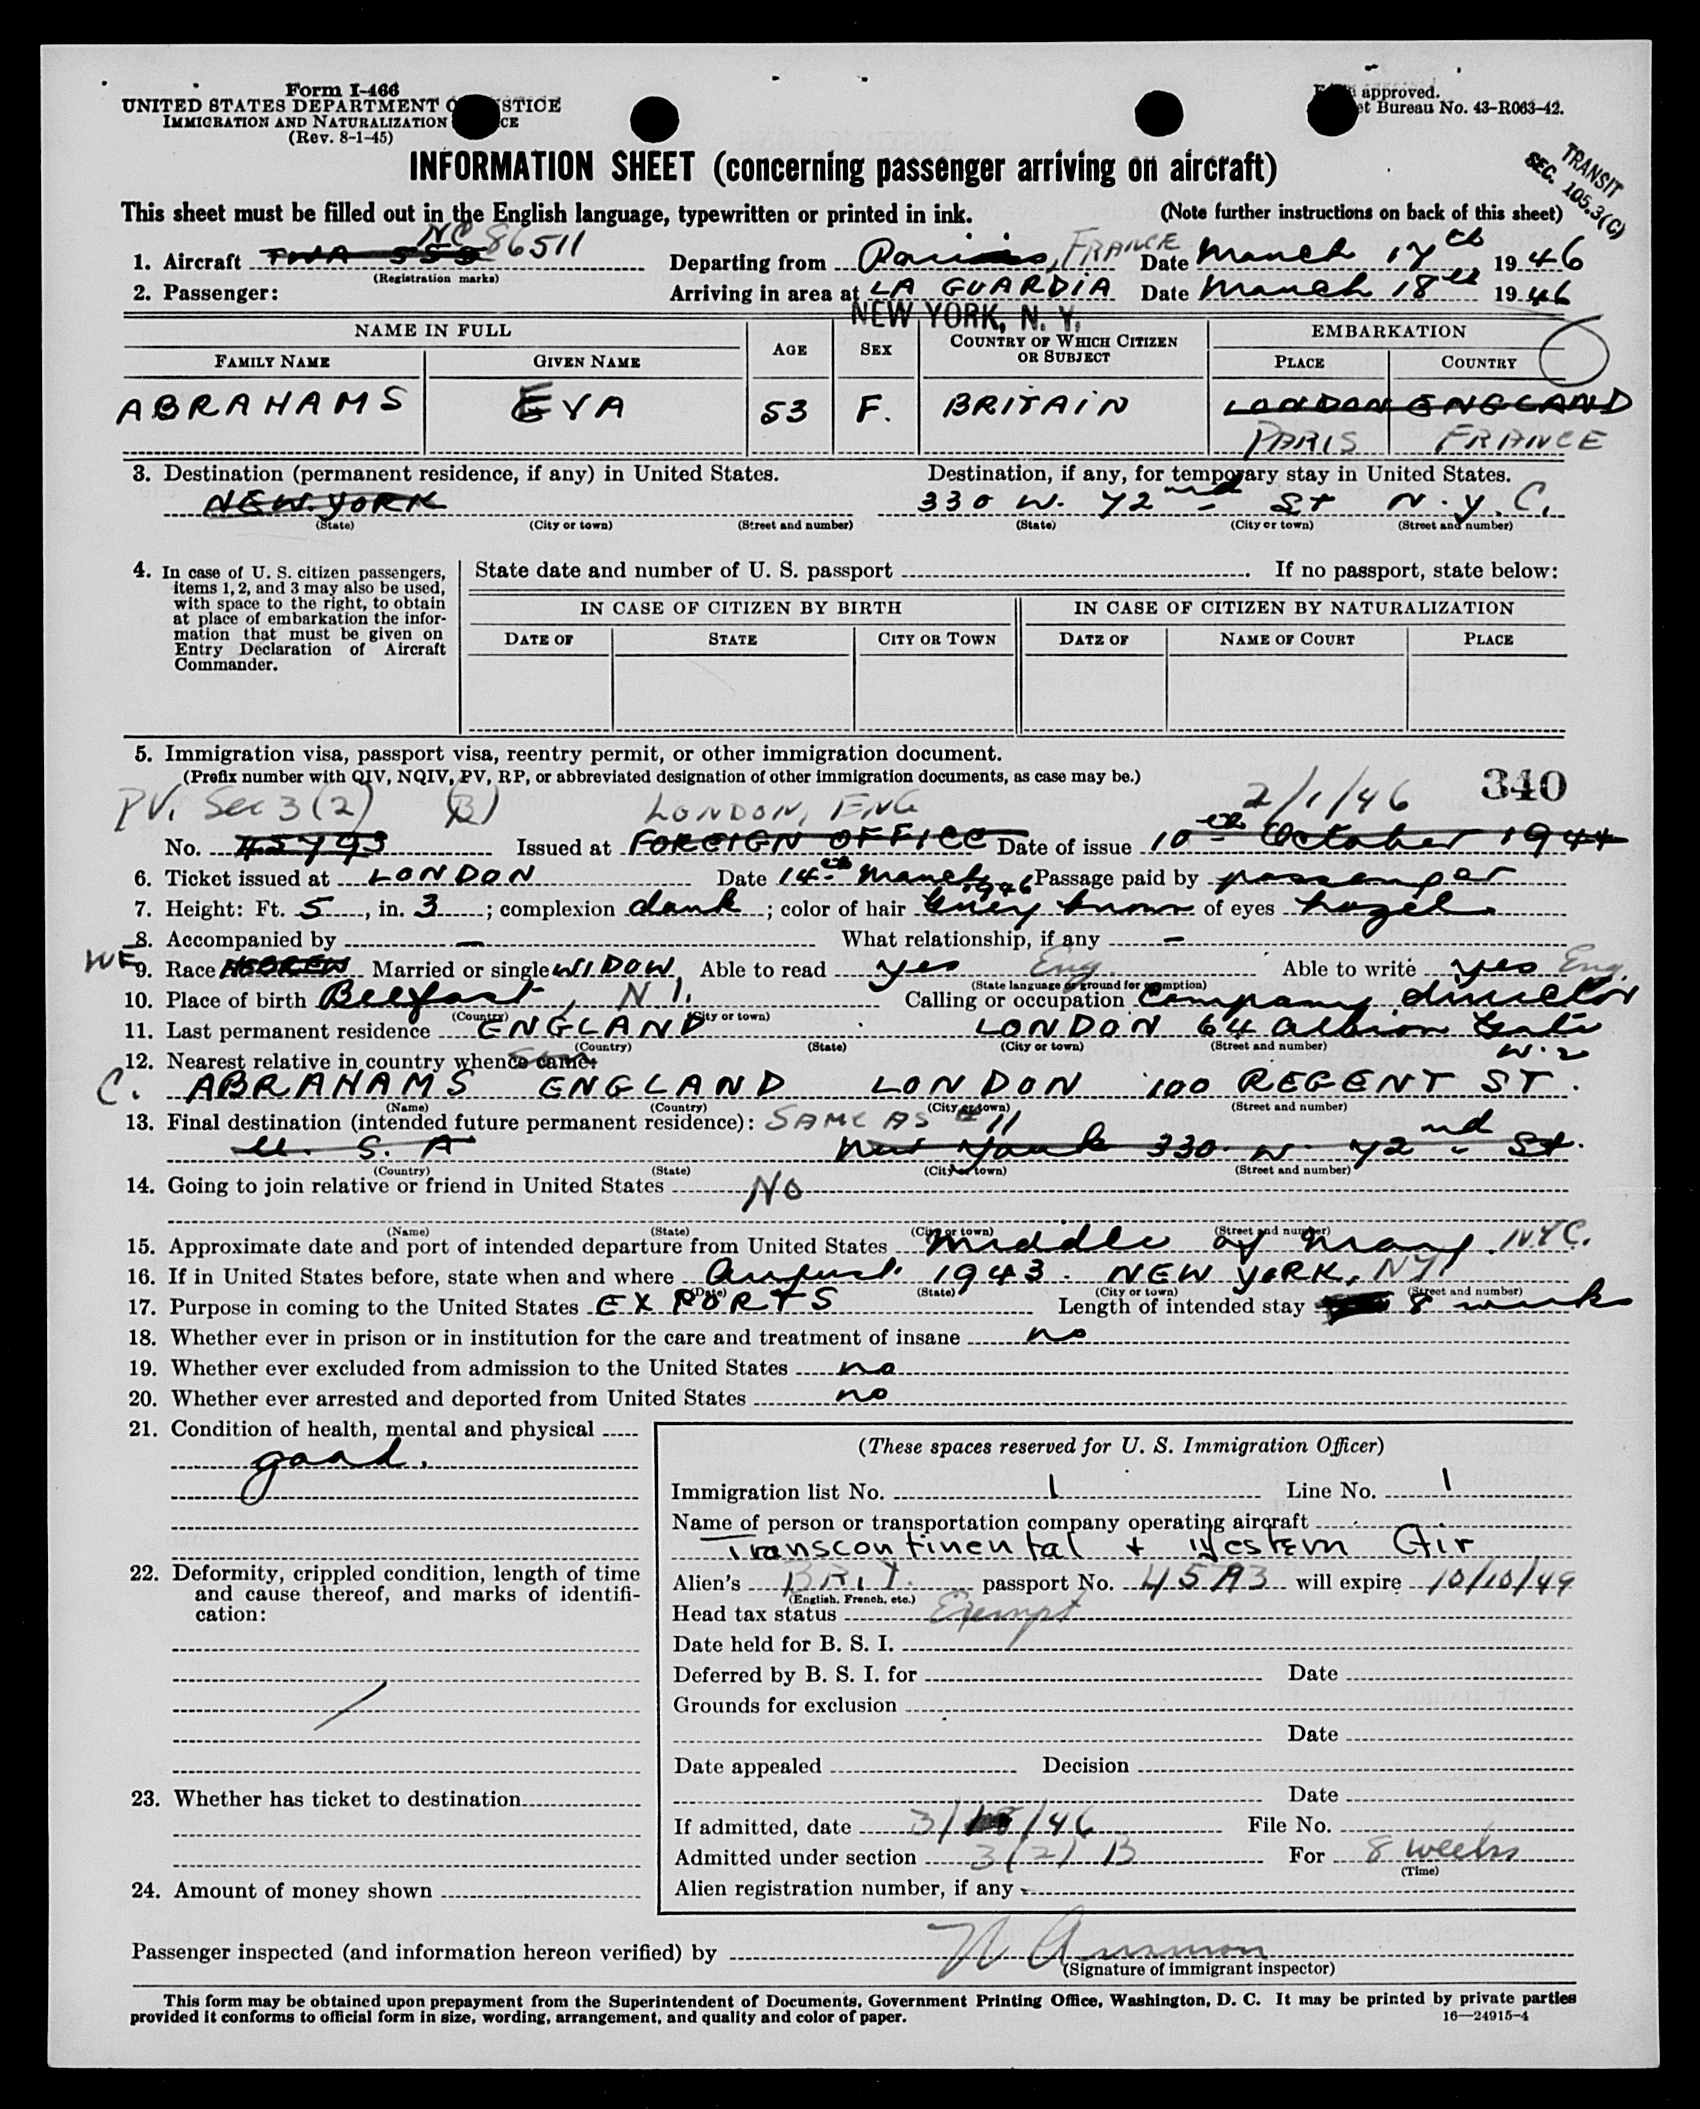 Form I-466
UNITED STATES DEPARTMENT O STICE
IMMIGRATION AND NATURALIZATION CE
(Rev. 8-1-45)
approved.
et Bureau No. 43-R063-42.
TRANSIT
SEC. 105.3(C)
INFORMATION SHEET (concerning passenger arriving on aircraft)
This sheet must be filled out in the English language, typewritten or printed in ink. (Note further instructions on back of this sheet)
NC 86511
1. Aircraft TWA 555 Departing from Paris, FRANCE Date March 17th 1946
(Registration marks)
2. Passenger: Arriving in area at LA GUARDIA Date March 18th 1946
NEW YORK, N. Y.
NAME IN FULL AGE SEX COUNTRY OF WHICH CITIZEN OR SUBJECT EMBARKATION
FAMILY NAME GIVEN NAME PLACE COUNTRY
ABRAHAMS EVA 53 F. BRITAIN LONDON ENGLAND
PARIS FRANCE
3. Destination (permanent residence, if any) in United States. Destination, if any, for temporary stay in United States.
NEW YORK 330 W. 72nd St N.Y.C.
(State) (City or town) (Street and number) (State) (City or town) (Street and number)
4. In case of U. S. citizen passengers, items 1, 2, and 3 may also be used, with space to the right, to obtain at place of embarkation the information that must be given on Entry Declaration of Aircraft Commander.
State date and number of U. S. passport If no passport, state below:
IN CASE OF CITIZEN BY BIRTH IN CASE OF CITIZEN BY NATURALIZATION
DATE OF STATE CITY OR TOWN DATE OF NAME OF COURT PLACE
5. Immigration visa, passport visa, reentry permit, or other immigration document.
(Prefix number with QIV, NQIV, PV, RP, or abbreviated designation of other immigration documents, as case may be.)
340
PV. Sec 3(2) (B) LONDON, ENG 2/1/46
No. 45793 Issued at FOREIGN OFFICE Date of issue 10th October 1944
6. Ticket issued at LONDON Date 14th March 1946 Passage paid by passenger
7. Height: Ft. 5, in. 3; complexion dark; color of hair Grey brown of eyes hazel
8. Accompanied by — What relationship, if any —
WE
9. Race HEBREW Married or single WIDOW Able to read yes Eng. Able to write yes Eng.
(State language or ground for exemption)
10. Place of birth Belfast, N I. Calling or occupation Company director
(Country) (City or town)
11. Last permanent residence ENGLAND LONDON 64 Albion Gate W.2
(Country) (State) (City or town) (Street and number)
12. Nearest relative in country whence came: Son
C. ABRAHAMS ENGLAND LONDON 100 REGENT ST.
(Name) (Country) (City or town) (Street and number)
13. Final destination (intended future permanent residence): SAME AS # 11
U. S. A New York 330 W. 72nd St.
(Country) (State) (City or town) (Street and number)
14. Going to join relative or friend in United States NO
(Name) (State) (City or town) (Street and number)
15. Approximate date and port of intended departure from United States Middle of May. NYC.
16. If in United States before, state when and where August 1943. NEW YORK, NY
(Date) (State) (City or town) (Street and number)
17. Purpose in coming to the United States EXPORTS Length of intended stay 8 weeks
18. Whether ever in prison or in institution for the care and treatment of insane no
19. Whether ever excluded from admission to the United States no
20. Whether ever arrested and deported from United States no
21. Condition of health, mental and physical
good.
22. Deformity, crippled condition, length of time and cause thereof, and marks of identification:
23. Whether has ticket to destination
24. Amount of money shown
(These spaces reserved for U. S. Immigration Officer)
Immigration list No. 1 Line No. 1
Name of person or transportation company operating aircraft
Transcontinental + Western Air
Alien's BRIT. passport No. 45793 will expire 10/10/49
(English, French, etc.)
Head tax status Exempt
Date held for B. S. I.
Deferred by B. S. I. for Date
Grounds for exclusion
Date
Date appealed Decision
Date
If admitted, date 3/18/46 File No.
Admitted under section 3(2) B For 8 weeks
(Time)
Alien registration number, if any
Passenger inspected (and information hereon verified) by
(Signature of immigrant inspector)
This form may be obtained upon prepayment from the Superintendent of Documents, Government Printing Office, Washington, D. C. It may be printed by private parties
provided it conforms to official form in size, wording, arrangement, and quality and color of paper. 16—24915-4